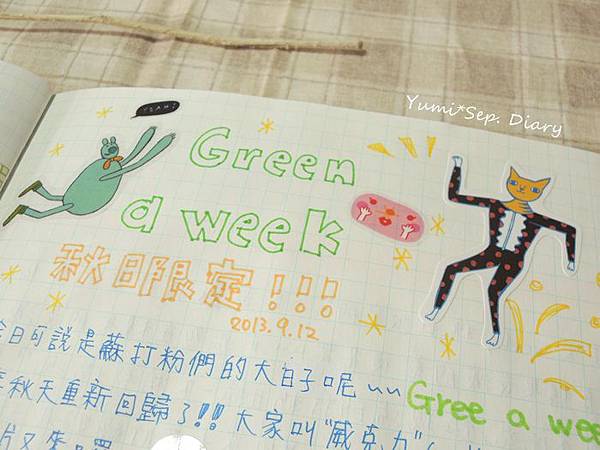 Yumi*Sep. Diary
YEAH!
Green
a week
秋日限定!!!
2013.9.12
今日可說是蘇打粉們的大日子呢~~
秋天重新回歸了!!大家叫"威克力"
Gree a wee
片又來囉